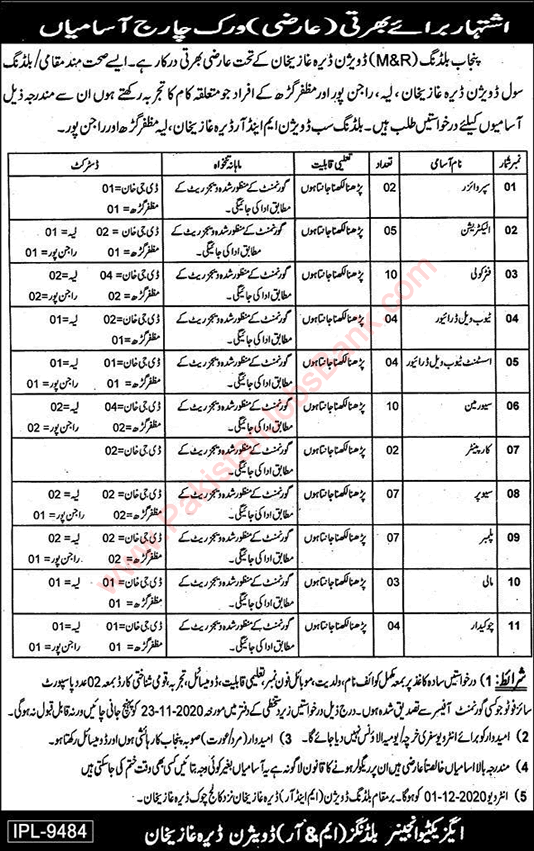 اشتہار برائے بھرتی (عارضی) ورک چارج آسامیاں
پنجاب بلڈنگ (M&R) ڈویژن ڈیرہ غازیخان کے تحت عارضی بھرتی درکار ہے۔ ایسے صحت مند مقامی/بلڈنگ
سول ڈویژن ڈیرہ غازیخان، لیہ، راجن پور اور مظفرگڑھ کے افراد جو متعلقہ کام کا تجربہ رکھتے ہوں ان سے مندرجہ ذیل
آسامیوں کیلئے درخواستیں طلب ہیں۔ بلڈنگ سب ڈویژن ایم اینڈ آر ڈیرہ غازیخان، لیہ مظفرگڑھ اور راجن پور۔
نمبر شمار نام آسامی تعداد تعلیمی قابلیت ماہانہ تنخواہ ڈسٹرکٹ
01 سپروائزر 02 پڑھنا لکھنا جانتا ہوں گورنمنٹ کے منظور شدہ ویجز ریٹ کے مطابق ادا کی جائیگی۔ ڈی جی خان=01 مظفرگڑھ=01
02 الیکٹریشن 05 پڑھنا لکھنا جانتا ہوں گورنمنٹ کے منظور شدہ ویجز ریٹ کے مطابق ادا کی جائیگی۔ ڈی جی خان=02 لیہ=01 مظفرگڑھ=01 راجن پور=01
03 فٹر کولی 10 پڑھنا لکھنا جانتا ہوں گورنمنٹ کے منظور شدہ ویجز ریٹ کے مطابق ادا کی جائیگی۔ ڈی جی خان=04 لیہ=02 مظفرگڑھ=02 راجن پور=02
04 ٹیوب ویل ڈرائیور 04 پڑھنا لکھنا جانتا ہوں گورنمنٹ کے منظور شدہ ویجز ریٹ کے مطابق ادا کی جائیگی۔ ڈی جی خان=02 لیہ=01 مظفرگڑھ=01
05 اسسٹنٹ ٹیوب ویل ڈرائیور 04 پڑھنا لکھنا جانتا ہوں گورنمنٹ کے منظور شدہ ویجز ریٹ کے مطابق ادا کی جائیگی۔ ڈی جی خان=01 لیہ=01 مظفرگڑھ=01 راجن پور=01
06 سیورمین 10 پڑھنا لکھنا جانتا ہوں گورنمنٹ کے منظور شدہ ویجز ریٹ کے مطابق ادا کی جائیگی۔ ڈی جی خان=04 لیہ=02 مظفرگڑھ=02 راجن پور=02
07 کارپینٹر 02 پڑھنا لکھنا جانتا ہوں گورنمنٹ کے منظور شدہ ویجز ریٹ کے مطابق ادا کی جائیگی۔ ڈی جی خان=02
08 سیوپر 07 پڑھنا لکھنا جانتا ہوں گورنمنٹ کے منظور شدہ ویجز ریٹ کے مطابق ادا کی جائیگی۔ ڈی جی خان=02 لیہ=02 مظفرگڑھ=02 راجن پور=01
09 پلمبر 07 پڑھنا لکھنا جانتا ہوں گورنمنٹ کے منظور شدہ ویجز ریٹ کے مطابق ادا کی جائیگی۔ ڈی جی خان=02 لیہ=02 مظفرگڑھ=02 راجن پور=01
10 مالی 03 پڑھنا لکھنا جانتا ہوں گورنمنٹ کے منظور شدہ ویجز ریٹ کے مطابق ادا کی جائیگی۔ ڈی جی خان=01 لیہ=01 مظفرگڑھ=01
11 چوکیدار 04 پڑھنا لکھنا جانتا ہوں گورنمنٹ کے منظور شدہ ویجز ریٹ کے مطابق ادا کی جائیگی۔ ڈی جی خان=01 لیہ=01 مظفرگڑھ=01 راجن پور=01
شرائط: 1) درخواستیں سادہ کاغذ پر بمعہ مکمل کوائف نام، ولدیت، موبائل فون نمبر، تعلیمی قابلیت، ڈومیسائل، تجربہ، قومی شناختی کارڈ بمعہ 02 عدد پاسپورٹ
سائز فوٹو جو کسی گورنمنٹ آفیسر سے تصدیق شدہ ہوں۔ درج ذیل درخواستیں زیر دستخطی کے دفتر میں مورخہ 23-11-2020 کو پہنچ جانی چاہئیں ورنہ قابل قبول نہ ہوگی۔
2) امیدوار کو برائے انٹرویو سفری خرچہ/یومیہ الاؤنس نہیں دیا جائے گا۔ 3) امیدوار (مرد/عورت) صوبہ پنجاب کا رہائشی ہوں اور ڈومیسائل رکھتا ہو۔
4) مندرجہ بالا آسامیاں خالصتاً عارضی ہیں ان پر ریگولر ہونے کا قانون لاگو نہ ہے یہ آسامیاں بغیر کوئی وجہ بتائیں کسی بھی وقت ختم کی جاسکتی ہیں
5) انٹرویو 01-12-2020 کو ہوگا۔ بر مقام بلڈنگ ڈویژن (ایم اینڈ آر) ڈیرہ غازیخان نزد کالج چوک ڈیرہ غازیخان۔
ایگزیکٹو انجینئر بلڈنگز (ایم & آر) ڈویژن ڈیرہ غازیخان
IPL-9484
www.PakistanJobsBank.com